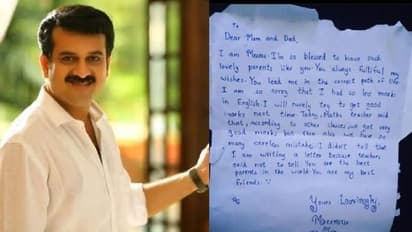 To
Dear Mam and Dad,
I am Meenu. I'm so blessed to have such
lovely parents like you. You always fulfiful my
wishes. You lead me in the correct path of life
I am so sorry that I had so less marks
in English. I will surely try to get good
marks next time. Today, Maths teacher said
that, according to other classes, we got very
good marks but then also we have so
many careless mistake. I didn't tell that
I am writing a letter because teachers
said not to tell. You are the best
parents in the world. You are my best
friends.
Yours Lovingly,
Meenu